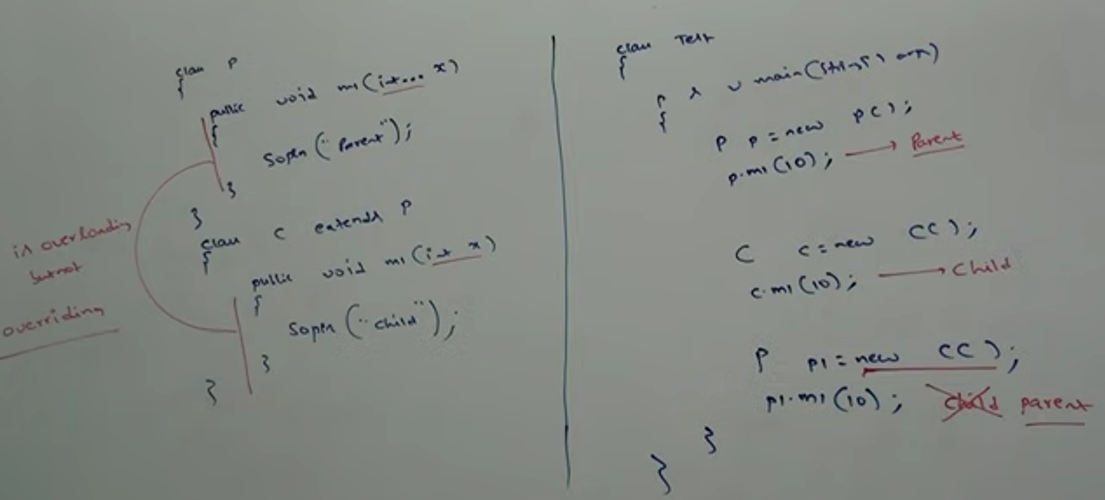 class P
{
public void m1(int... x)
{
Sopln("Parent");
}
}
class C extends P
{
public void m1(int x)
{
Sopln("child");
}
}
is overloading
but not
overriding
class Test
{
P S V main(String[] args)
{
P p=new P();
p.m1(10); → Parent
C c=new C();
c.m1(10); → Child
P p1=new C();
p1.m1(10); child parent
}
}